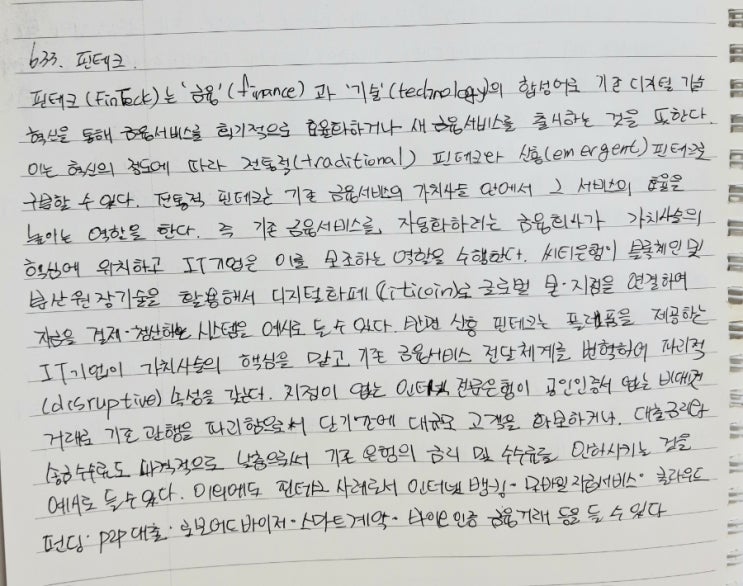 633. 핀테크.
핀테크(FinTech)는 '금융'(finance)과 '기술'(technology)의 합성어로 기존 디지털 기술
혁신을 통해 금융서비스를 획기적으로 효율화하거나 새 금융서비스를 출시하는 것을 뜻한다.
이는 혁신의 정도에 따라 전통적(traditional) 핀테크와 신흥(emergent) 핀테크로
구분할 수 있다. 전통적 핀테크는 기존 금융서비스의 가치사슬 안에서 그 서비스의 효율을
높이는 역할을 한다. 즉 기존 금융서비스를 자동화하려는 금융회사가 가치사슬의
핵심에 위치하고 IT기업은 이를 보조하는 역할을 수행한다. 씨티은행이 블록체인 및
분산원장기술을 활용해서 디지털화폐(citicoin)로 글로벌 본·지점을 연결하여
자금을 결제·청산하는 시스템을 예시로 들 수 있다. 반면 신흥 핀테크는 플랫폼을 제공하는
IT기업이 가치사슬의 핵심을 맡고 기존 금융서비스 전달체계를 변혁하여 파괴적
(disruptive) 속성을 갖는다. 지점이 없는 인터넷 전문은행이 공인인증서 없는 비대면
거래로 기존 관행을 파괴함으로써 단기간에 대규모 고객을 확보하거나, 대출금리와
송금 수수료도 파격적으로 낮춤으로써 기존 은행의 금리 및 수수료를 인하시키는 것을
예시로 들 수 있다. 이외에도 핀테크 사례로서 인터넷 뱅킹·모바일 지급서비스·크라우드
펀딩·P2P 대출·로보어드바이저·스마트계약·바이오 인증 금융거래 등을 들 수 있다